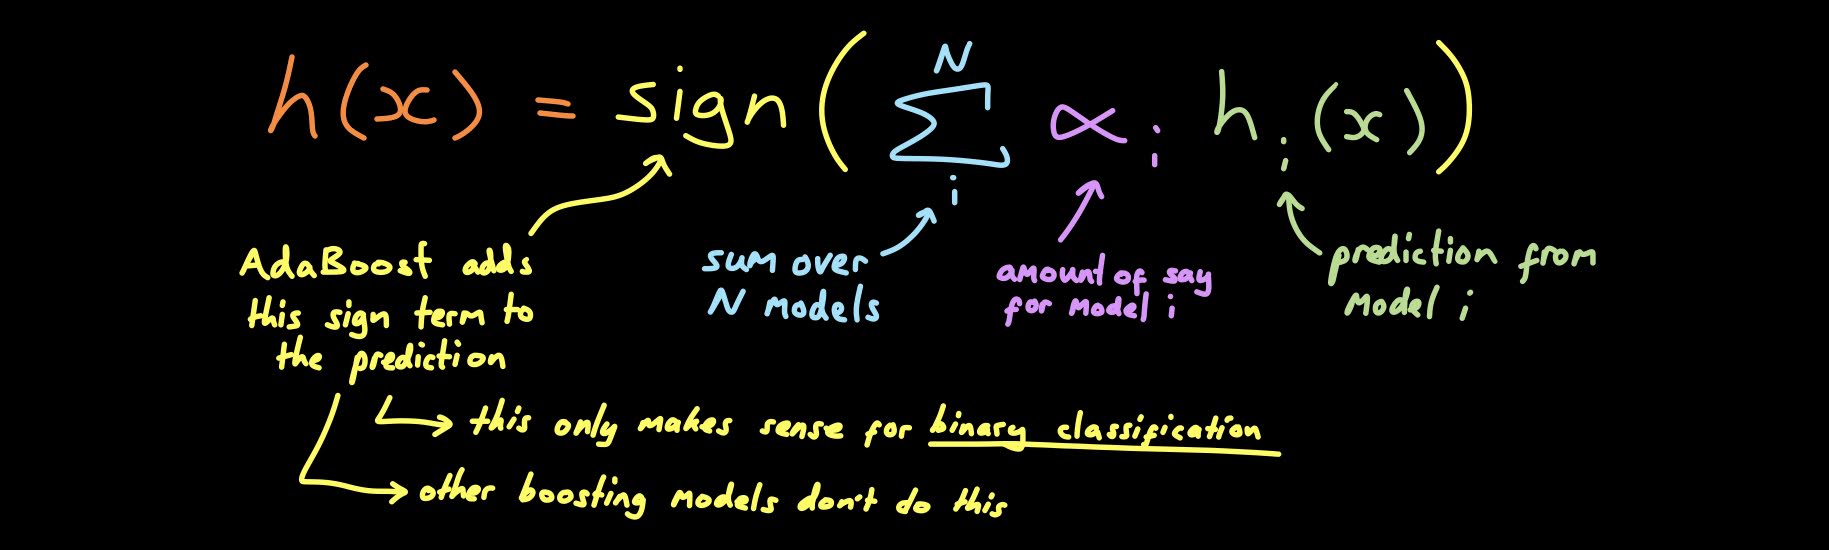 h(x) = sign( N ∑ i ∝i hi(x) )
AdaBoost adds
this sign term to
the prediction
sum over
N models
amount of say
for model i
prediction from
model i
this only makes sense for binary classification
other boosting models don't do this